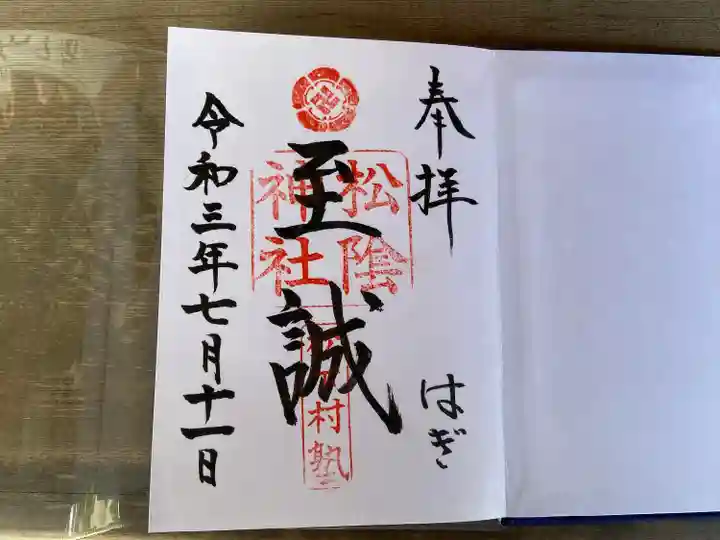 奉拝
はぎ
松陰
神社
至誠
村塾
令和三年七月十一日